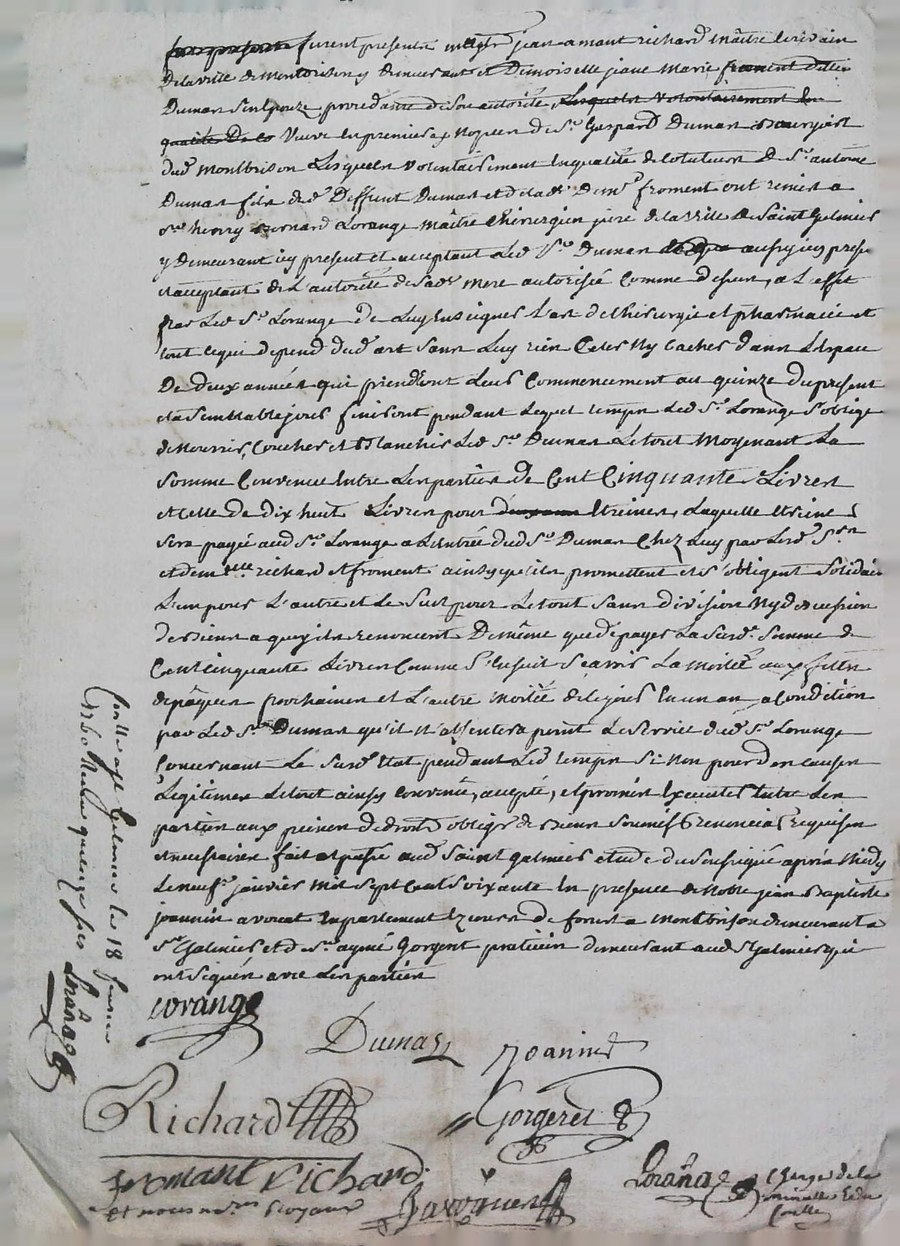 furent presents jean amant richard maître écrivain
de la ville de montbrison y demeurant et Demoiselle jeane Marie froment
Dumas son epouze procedante de son autorité, lesquels volontairement en
qualités de Veuve en premieres Nopces de Sr. Gaspard Dumas Bourgeois
dud. Montbrison Lesquels volontairement en qualité de cotuteurs de Sr. antoine
Dumas fils dud. Deffunt Dumas et de lad. Demlle. froment ont remis a
Sr. henry Bernard Lorange maître Chirurgien juré de la Ville de Saint Galmier
y Demeurant icy present et acceptant Led. Sr. Dumas aussy icy present
et acceptant de L'autorité de sad. mere autorisée comme dessus, a L'effet
par Led. Sr. Lorange de Luy enseigner L'art de chirurgie et pharmacie et
tout ce qui depend dud. art sans Luy rien Celer Ny Cacher Dans L'espace
De deux années qui prendront Leur Commencement au quinze du present
et a semblable jour finiront pendant Lequel temps Led. Sr. Lorange s'oblige
de Nourrir, Coucher et Blanchir Led. Sr. Dumas Le tout Moyenant La
Somme Convenue Entre Les parties de Cent Cinquante Livres
et celle de dix huit Livres pour Etreines, Laquelle Etreine
Sera payée aud. Sr. Lorange a L'entrée dud. Sr. Dumas Chez Luy par Lesd. Srs.
et demelle richard et froment ainsy qu'ils promettent et s'obligent Solidairement
L'un pour L'autre et Le Seul pour Le tout Sans division Ny discussion
de Biens a quoy ils renoncent De même que de payer La Susd. Somme de
Cent cinquante Livres Comme S'ensuit Scavoir La moitié aux fêtes
de pâques prochaines et L'autre moitié de ce jour En un an a Condition
par Led. Sr. Dumas qu'il n'absentera point Le Service dud. Sr. Lorange
Concernant Le Susd. Etat pendant Led. temps Si Non pour des causes
Legitimes Le tout ainsy convenu, accepté, et promis Executer Entre Les
parties aux peines de droits obligé de Biens Soumis Renoncés requises
et necessaires fait et passé aud. Saint galmier etude du Soussigné après Midy
Le neuf. janvier Mil Sept Cent Soixante En presence de Noble jean Baptiste
joannin avocat En parlement Ez cours de forest a Montbrison demeurant a
St. Galmier et de Sr. aymé Gorgeret praticien demeurant aud. St Galmier qui
ont Signés avec Les parties
Lorange
Dumas
Joannin
Richard
Gorgeret
fromant Richard
Lorange
Controllé a St Galmier le 18 janvier
1760 Reçu quinze sols Lorange